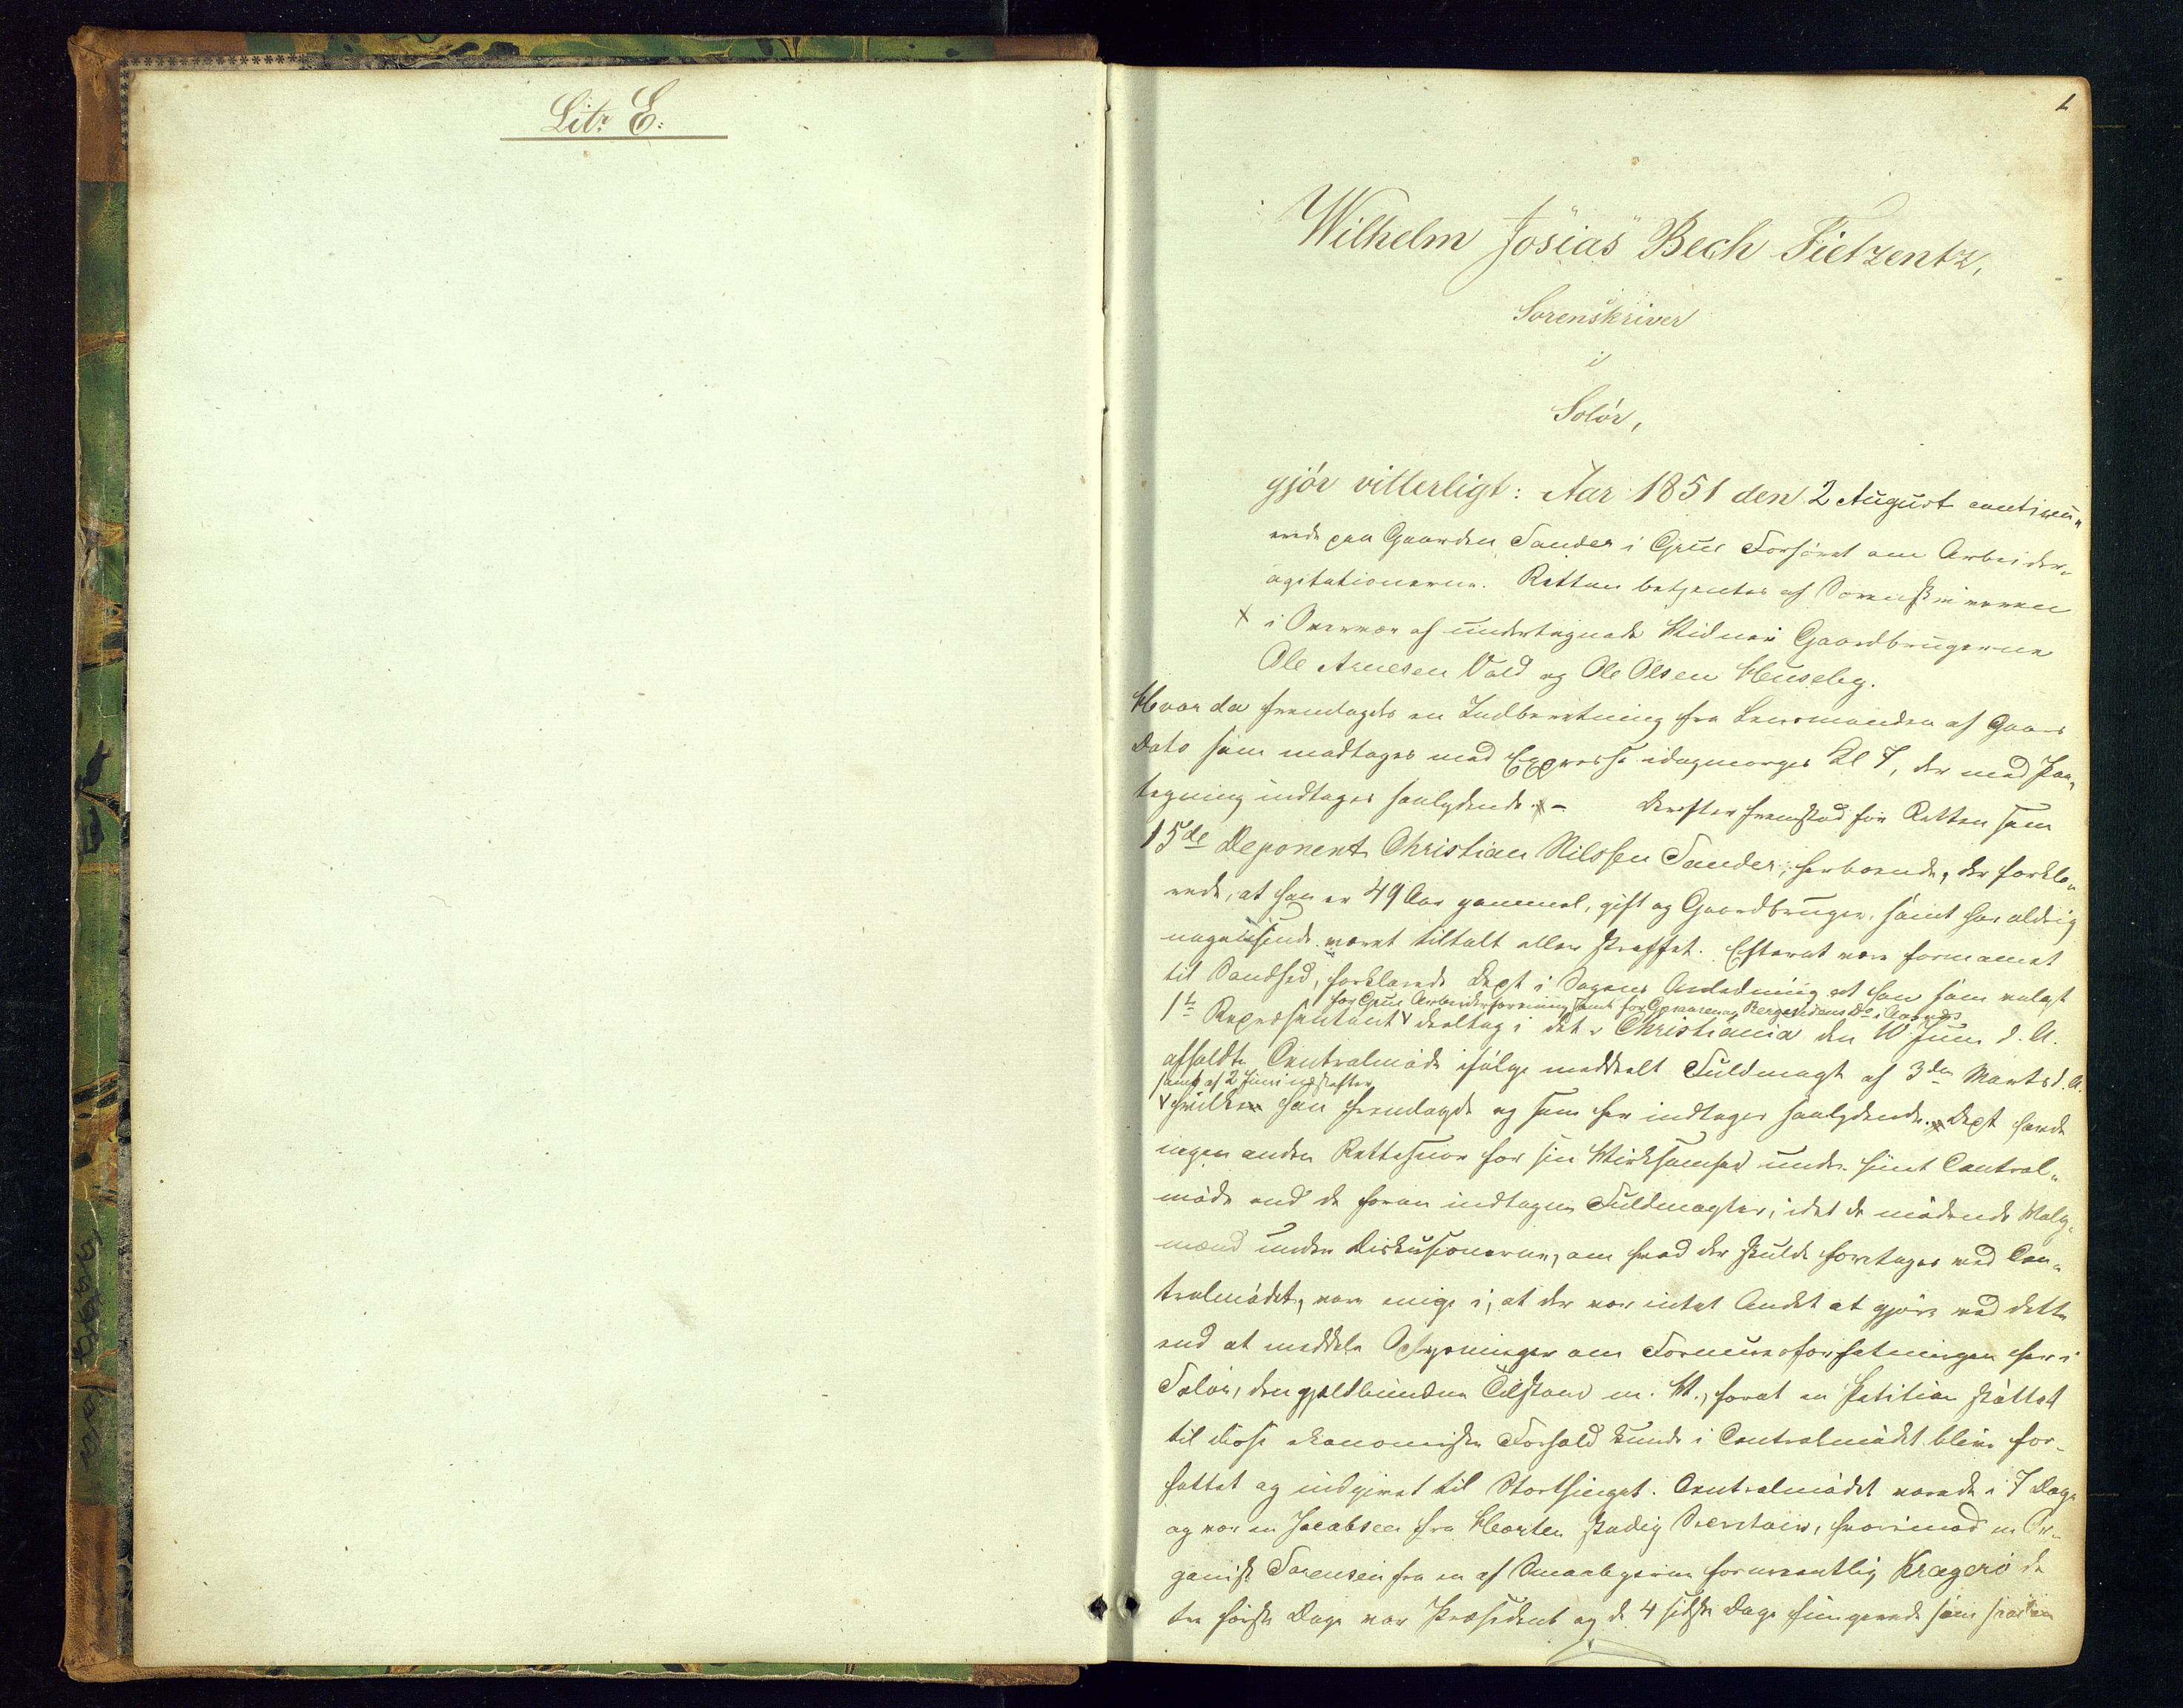 Litr E:
1
Wilhelm Josias Bech Fietzentz,
Sorenskriver
i
Solör,
gjör vitterligt: Aar 1851 den 2 August continu„
erede paa Gaarden Sander i Grue Forhöret om Arbeider„
agitationerne. Retten betjentes af Sorenskriveren
i Overvær af undertegnede Vidner Gaardbrugerne
Ole Arnesen Vold og Ole Olsen Huseby.
Hvor da fremlagdes en Indberetning fra Lensmanden af Gaars
Dato som modtoges med Expresse idagmorges Kl 7, der med Paa„
tegning indtages saalydende. – Derefter fremstod for Retten som
15de Deponent Christian Nilssen Sander, herboende, der forkla„
rede, at han er 49 Aar gammel, gift og Gaardbruger, samt har aldrig
nogensinde været tiltalt eller straffet. Efterat være formanet
til Sandhed, forklarede Dept i Sagens Anledning at han som valgt
for Grue Arbeiderforening samt for
1ste Repræsentant deeltog i det i Christiania den 10 Juni d. A.
afholdte Centralmöde ifölge meddeelt Fuldmagt af 3die Marts d. A.
samt af 2 Juni næstefter
hvilke han fremlagde og som her indtages saalydende. Dept havde
ingen anden Rettesnor for sin Virksomhed under hiint Central„
möde end de foran indtagne Fuldmagter, idet de mödende Valg„
mænd under Diskusionerne, om hvad der skulde foretages ved Cen„
tralmödet, vare enige i, at der var intet Andet at gjöre ved dette
end at meddele Oplysninger om Formuesforfatningen her i
Solör, den gjeldbundne Tilstand m. V., forat en Petition stöttet
til disse ekonomiske Forhold kunde i Centralmödet blive for„
fattet og indgivet til Storthinget. Centralmödet varede i 7 Dage
og var en Jacobsen fra Horten stadig Secretair, hvorimod en Or„
ganist Sörensen fra en af Smaabyerne formeentlig Kragerö de
tre förste Dage var Præsident og de 4 sidste Dage fungerede som saadan